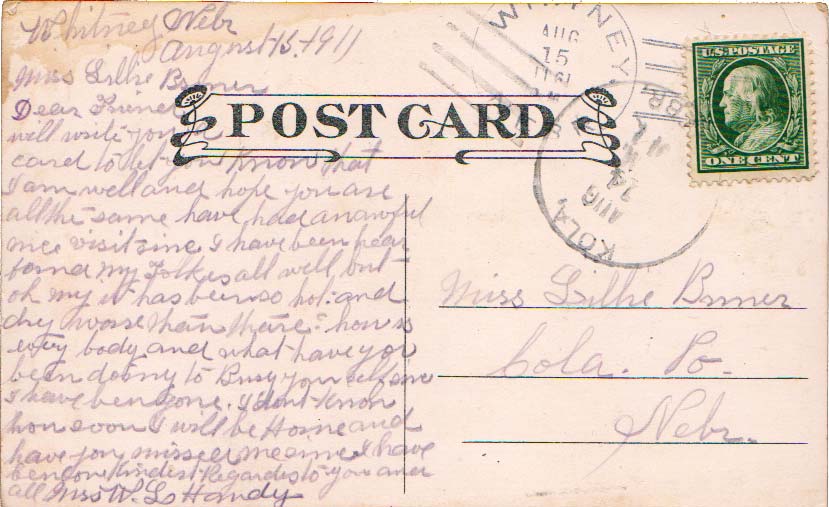 Whitney Nebr
August 15, 1911
Miss Lillie Bruner
Dear Friend
will write you a
card to let you know that
I am well and hope you are
all the same have had an awful
nice visit sine I have been hear
found my Folks all well but
oh my it has been so hot and
dry worse than there: how is
every body and what have you
been doing to Busy you self sine
I have ben gone. I dont know
how soon I will be Home and
have you missed me sine I have
ben gone Kindest Regardes to you and
all Miss W. L. Handy
POST CARD
WHITNEY
AUG
15
NEBR.
KOLA,
AUG
U.S. POSTAGE
ONE CENT
Miss Lillie Bruner
Cola. Po.
Nebr.